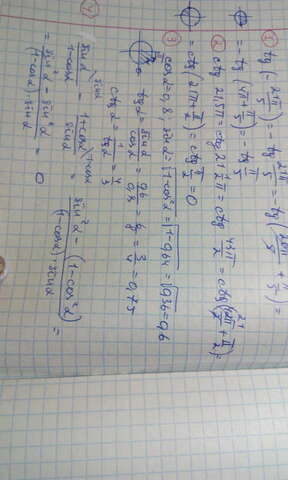 ① tg(-21π/5) = -tg 21π/5 = -tg(20π/5 + π/5) =
= -tg(4π + π/5) = -tg π/5
② ctg 21,5π = ctg 21 1/2 π = ctg 43π/2 = ctg(42π/2 + π/2) =
= ctg(21π + π/2) = ctg π/2 = 0
③ cosα = 0,8 sinα = √1-cos²α = √1-0,64 = √0,36 = 0,6
tgα = sinα/cosα = 0,6/0,8 = 6/8 = 3/4 = 0,75
ctgα = 1/tgα = 4/3
④ sinα/1-cosα - 1+cosα/sinα = sin²α - (1-cos²α)/(1-cosα)·sinα =
= sin²α - sin²α/(1-cosα)·sinα = 0